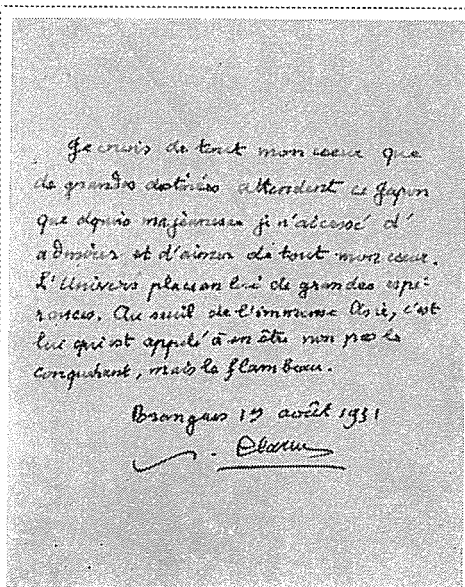 Je crois de tout mon coeur que
de grandes destinées attendent ce Japon
que depuis ma jeunesse je n'ai cessé d'
admirer et d'aimer de tout mon coeur.
L'Univers place en lui de grandes espé
rances. Au seuil de l'immense Asie, c'est
lui qui est appelé à en être non pas le
conquérant, mais le flambeau.
Brangues 19 août 1951
Claudel